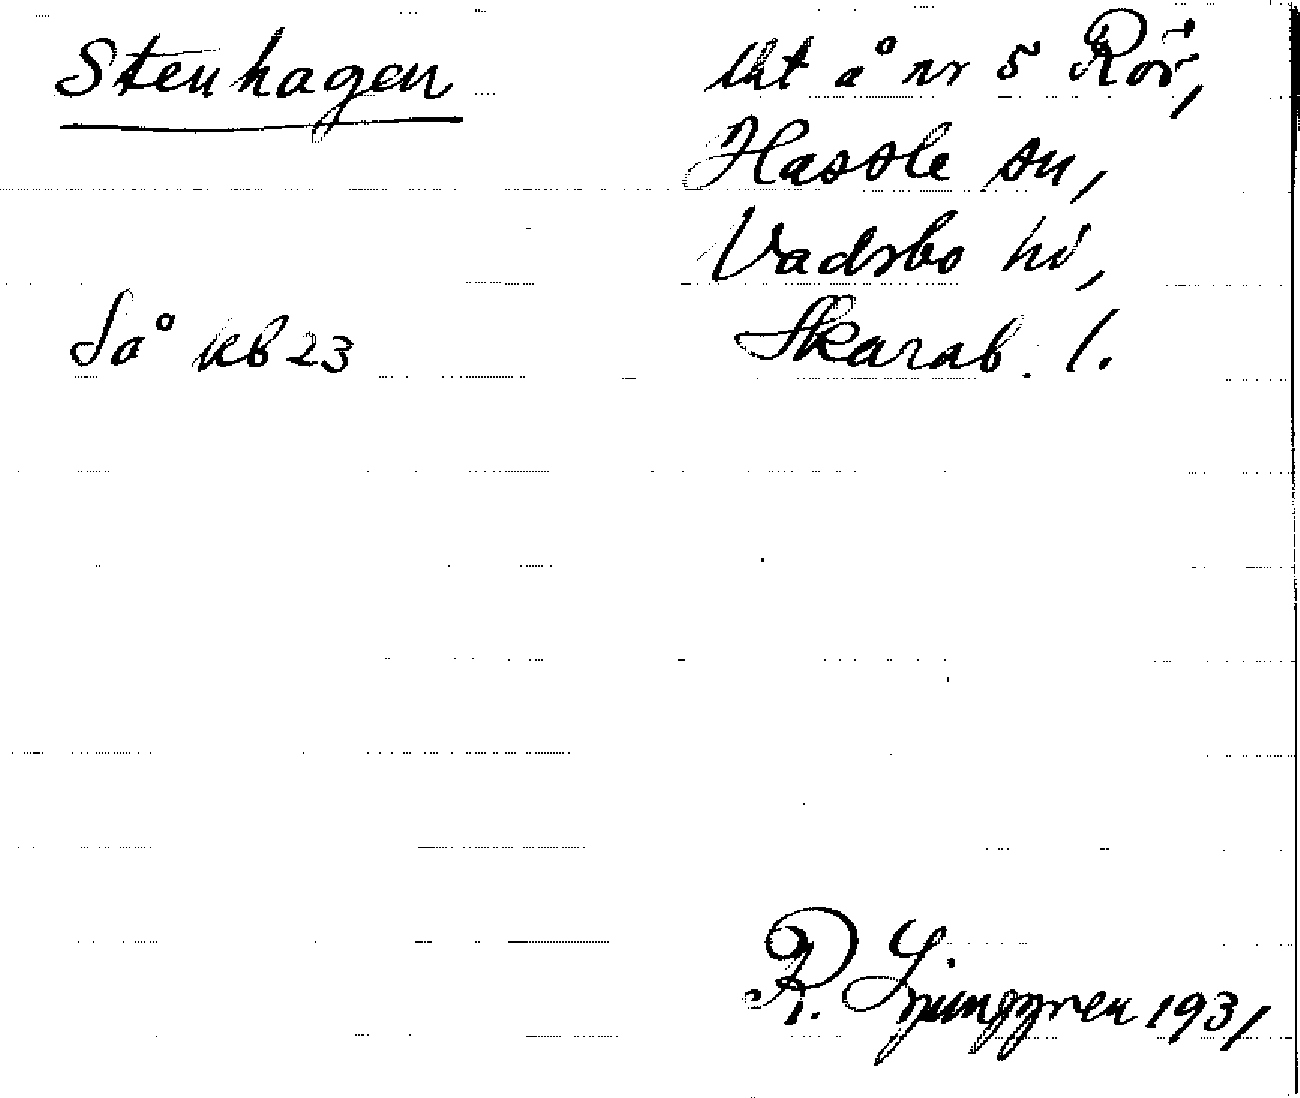 Stenhagen
Så kb 23
lht å nr 5 Rör,
Hassle sn,
Vadsbo hd,
Skarab. l.
R. Ljunggren 1931